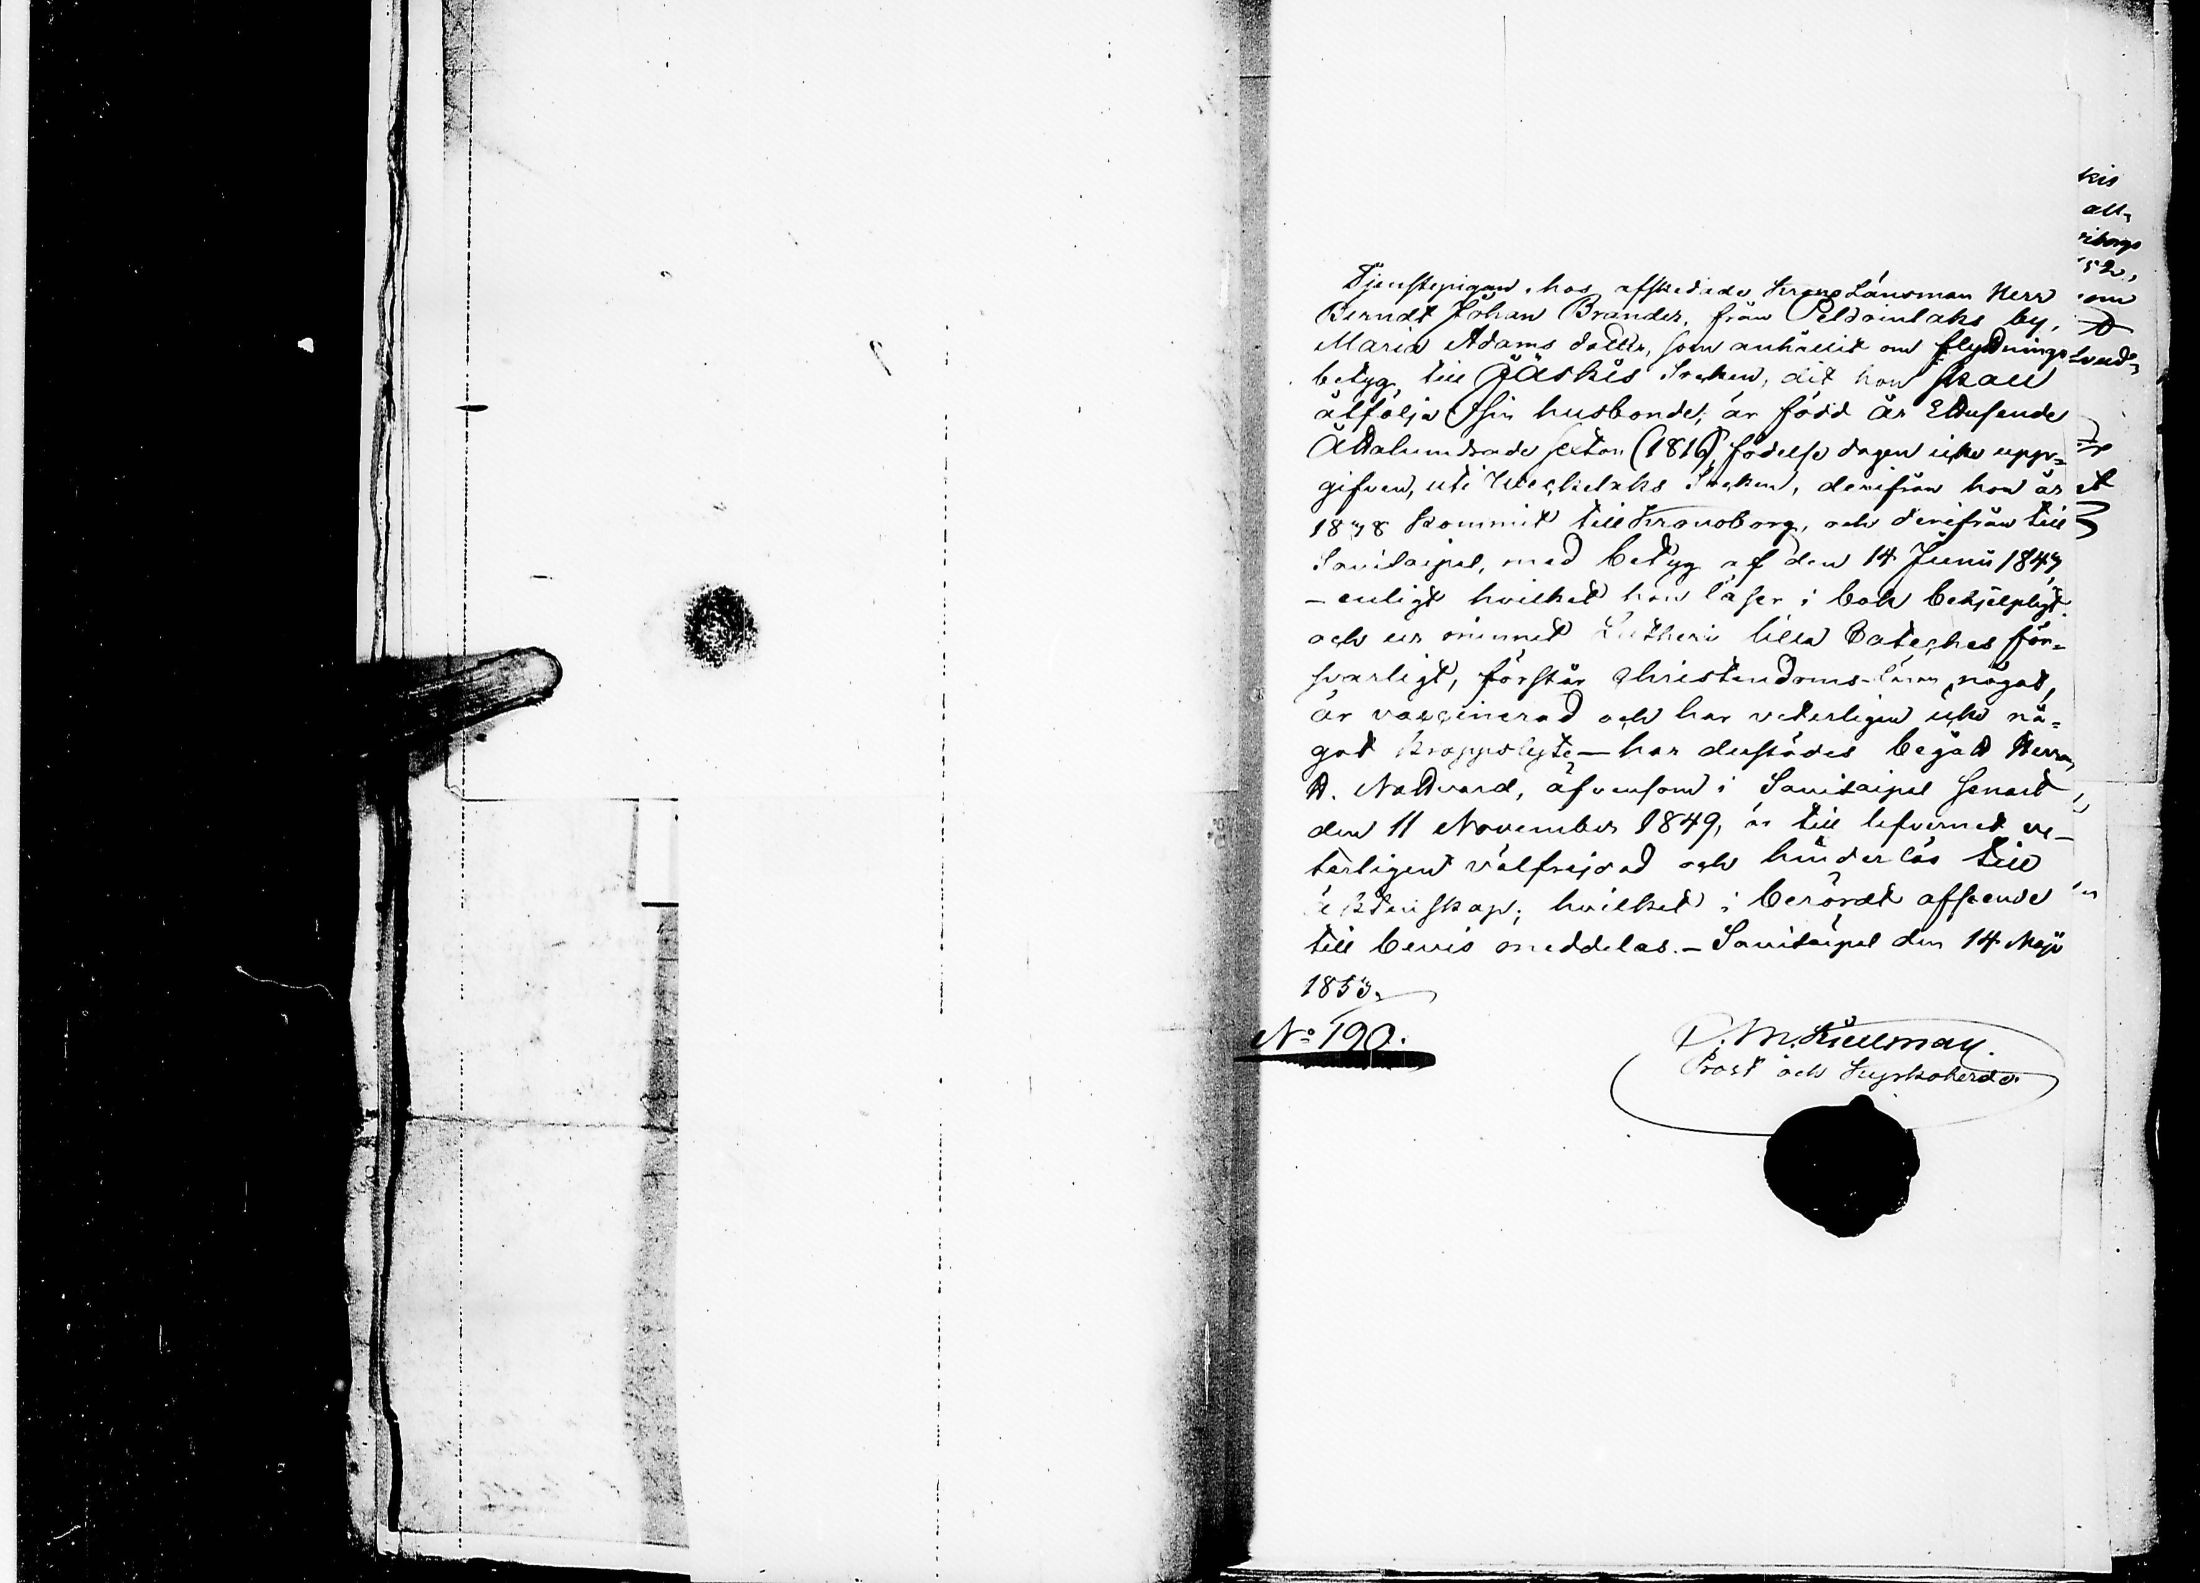 Tjenstepigan hos afskedade Krono Länsman Herr
Berndt Johan Brander, från Peldoinlaks by,
Maria Adams dotter, som anhållit om flyttnings
betyg till Jääskis Socken, dit hon skall
åtfölja sin husbonde, är född år Ettusende
Åttahundrade sexton (1816), födelse dagen icke upp=
gifven, uti Socken, derifrån hon år
1838 kommit till Kronoborg, och derifrån till
Savitaipal, med betyg af den 14 Junii 1847
– enligt hvilket hon läser i bok behjelpligt
och ur minnet Lutheri lilla Cateches för=
svarligt, förstår Christendoms-läran något,
är vaccinerad och har veterligen icke nå=
got kroppslyte – har derstädes begått Herrans
H. Nattvard, äfvensom i Savitaipal senast
den 11 November 1849, är till lefvernet ve–
terligen välfrejdad och hinderlös till
äktenskap; hvilket i berördt afseende
till bevis meddelas. – Savitaipal den 14 Maji
1853.
No 190.
P. M. Killman.
Prost och Kyrkoherde.
kis
att
iborgs
52,
om